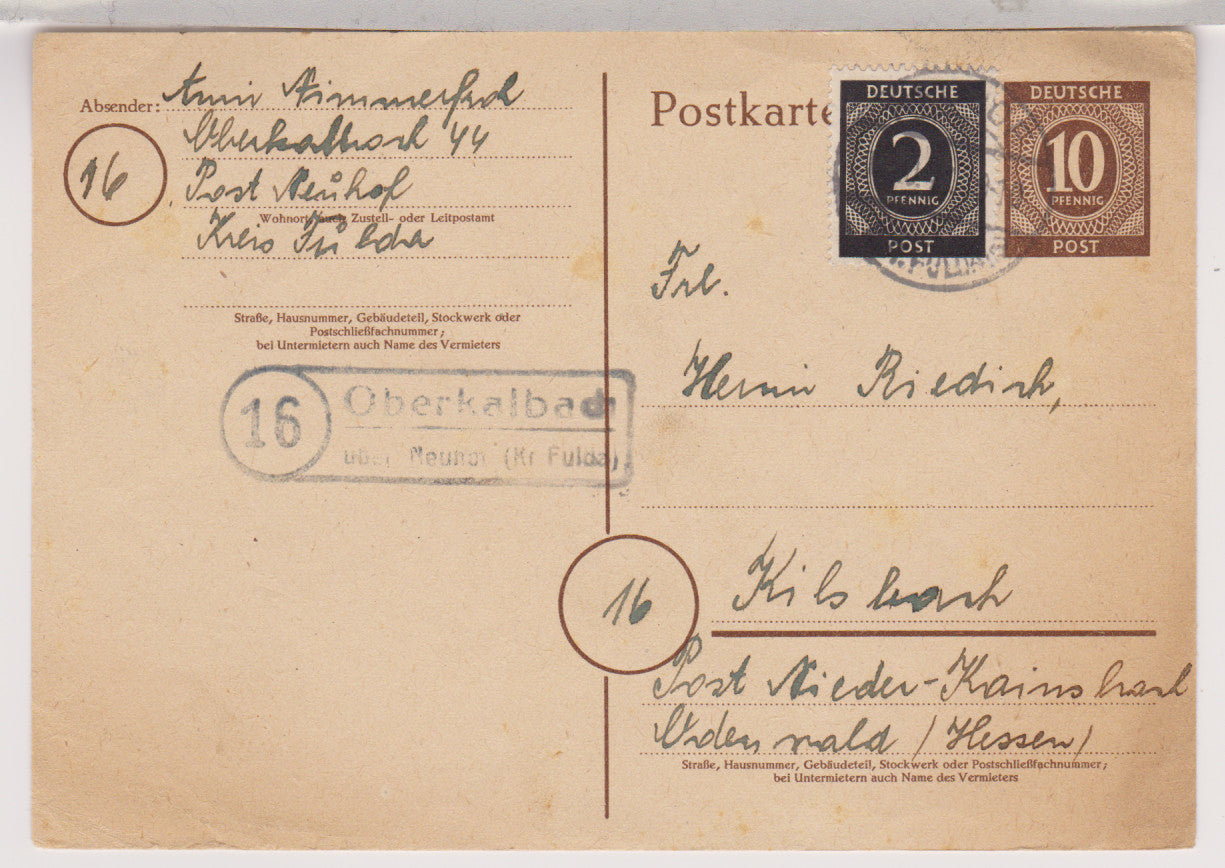 Absender: Anni Nimmerfroh
Oberkalbach 44
16
Post Neuhof
Wohnort, auch Zustell- oder Leitpostamt
Kreis Fulda
Straße, Hausnummer, Gebäudeteil, Stockwerk oder
Postschließfachnummer;
bei Untermietern auch Name des Vermieters
16
Oberkalbach
über Neuhof (Kr Fulda)
Postkarte
DEUTSCHE
2
PFENNIG
POST
DEUTSCHE
10
PFENNIG
POST
FULDA
Frl.
Riedich,
16
Kilsbach
Post Nieder-Kainsbach
Odenwald (Hessen)
Straße, Hausnummer, Gebäudeteil, Stockwerk oder Postschließfachnummer;
bei Untermietern auch Name des Vermieters